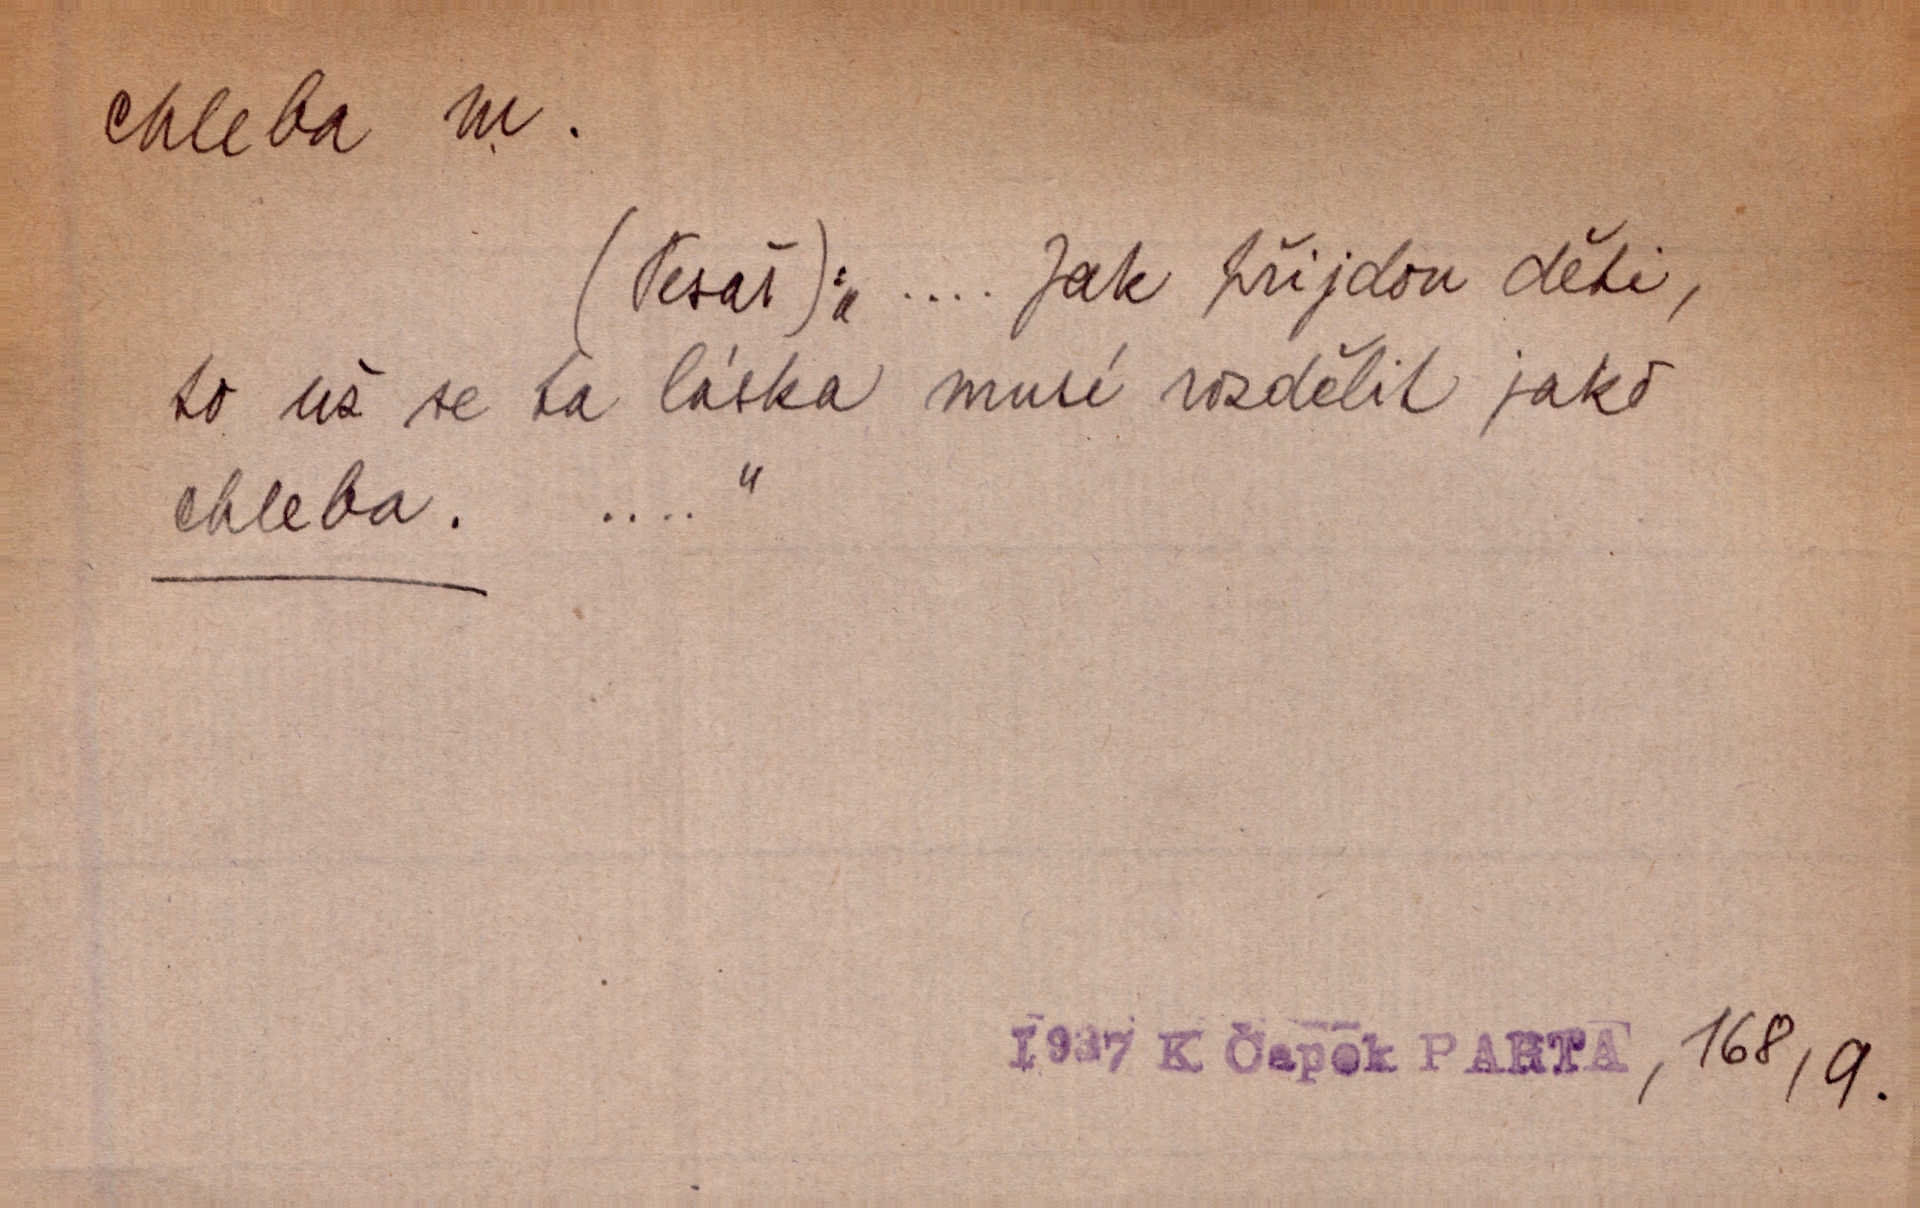 chleba m.
(Tesař): „ .... Jak přijdou děti,
to už se ta láska musí rozdělit jako
chleba. .... "
1937 K Čapek PARTA, 168, 9.